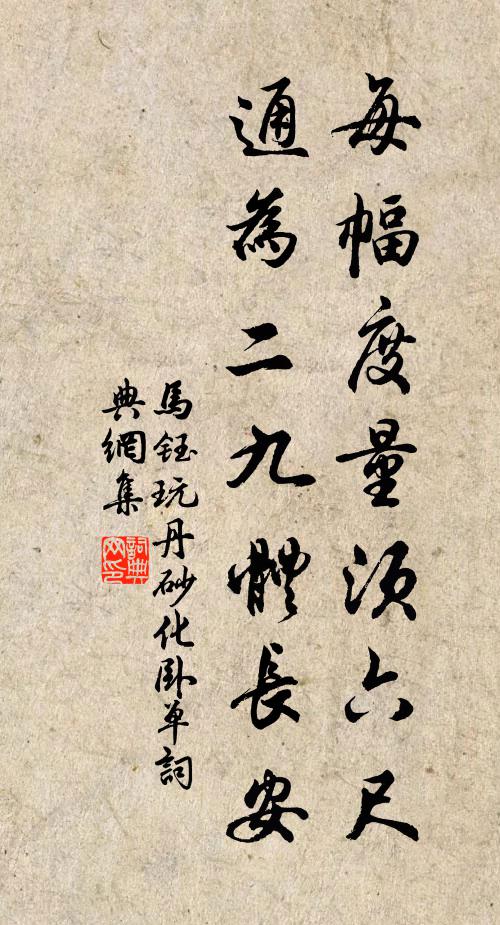 每幅度量須六尺
通為二九體長安
馬鈺玩丹砂化卧單詞
典網集
詞典网印